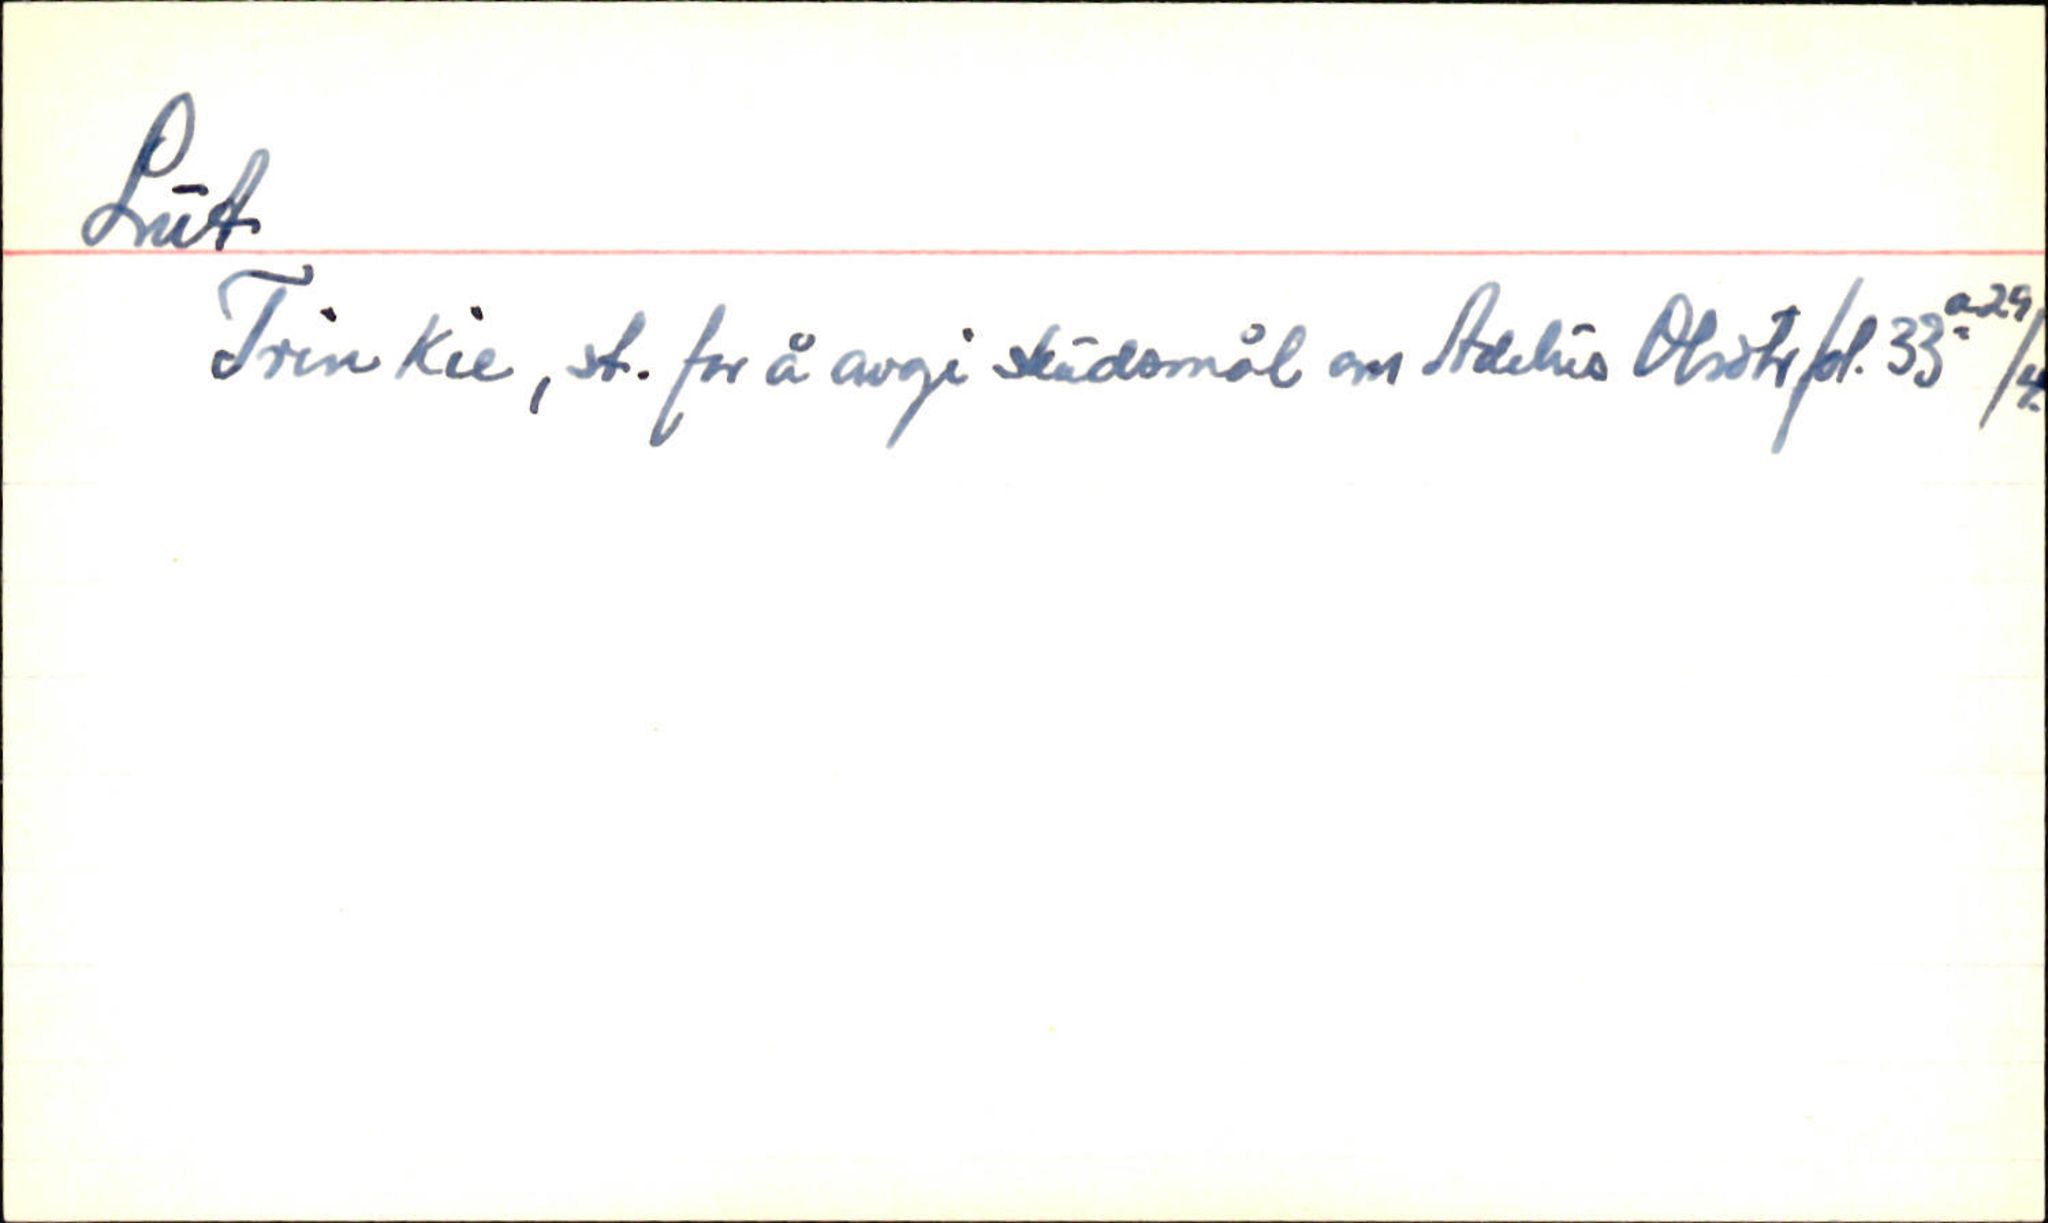 Lūt
Trinkie, st. for å avgi skūdsmål om Adelūs Olsdtr/pl. 33ª 29/4.